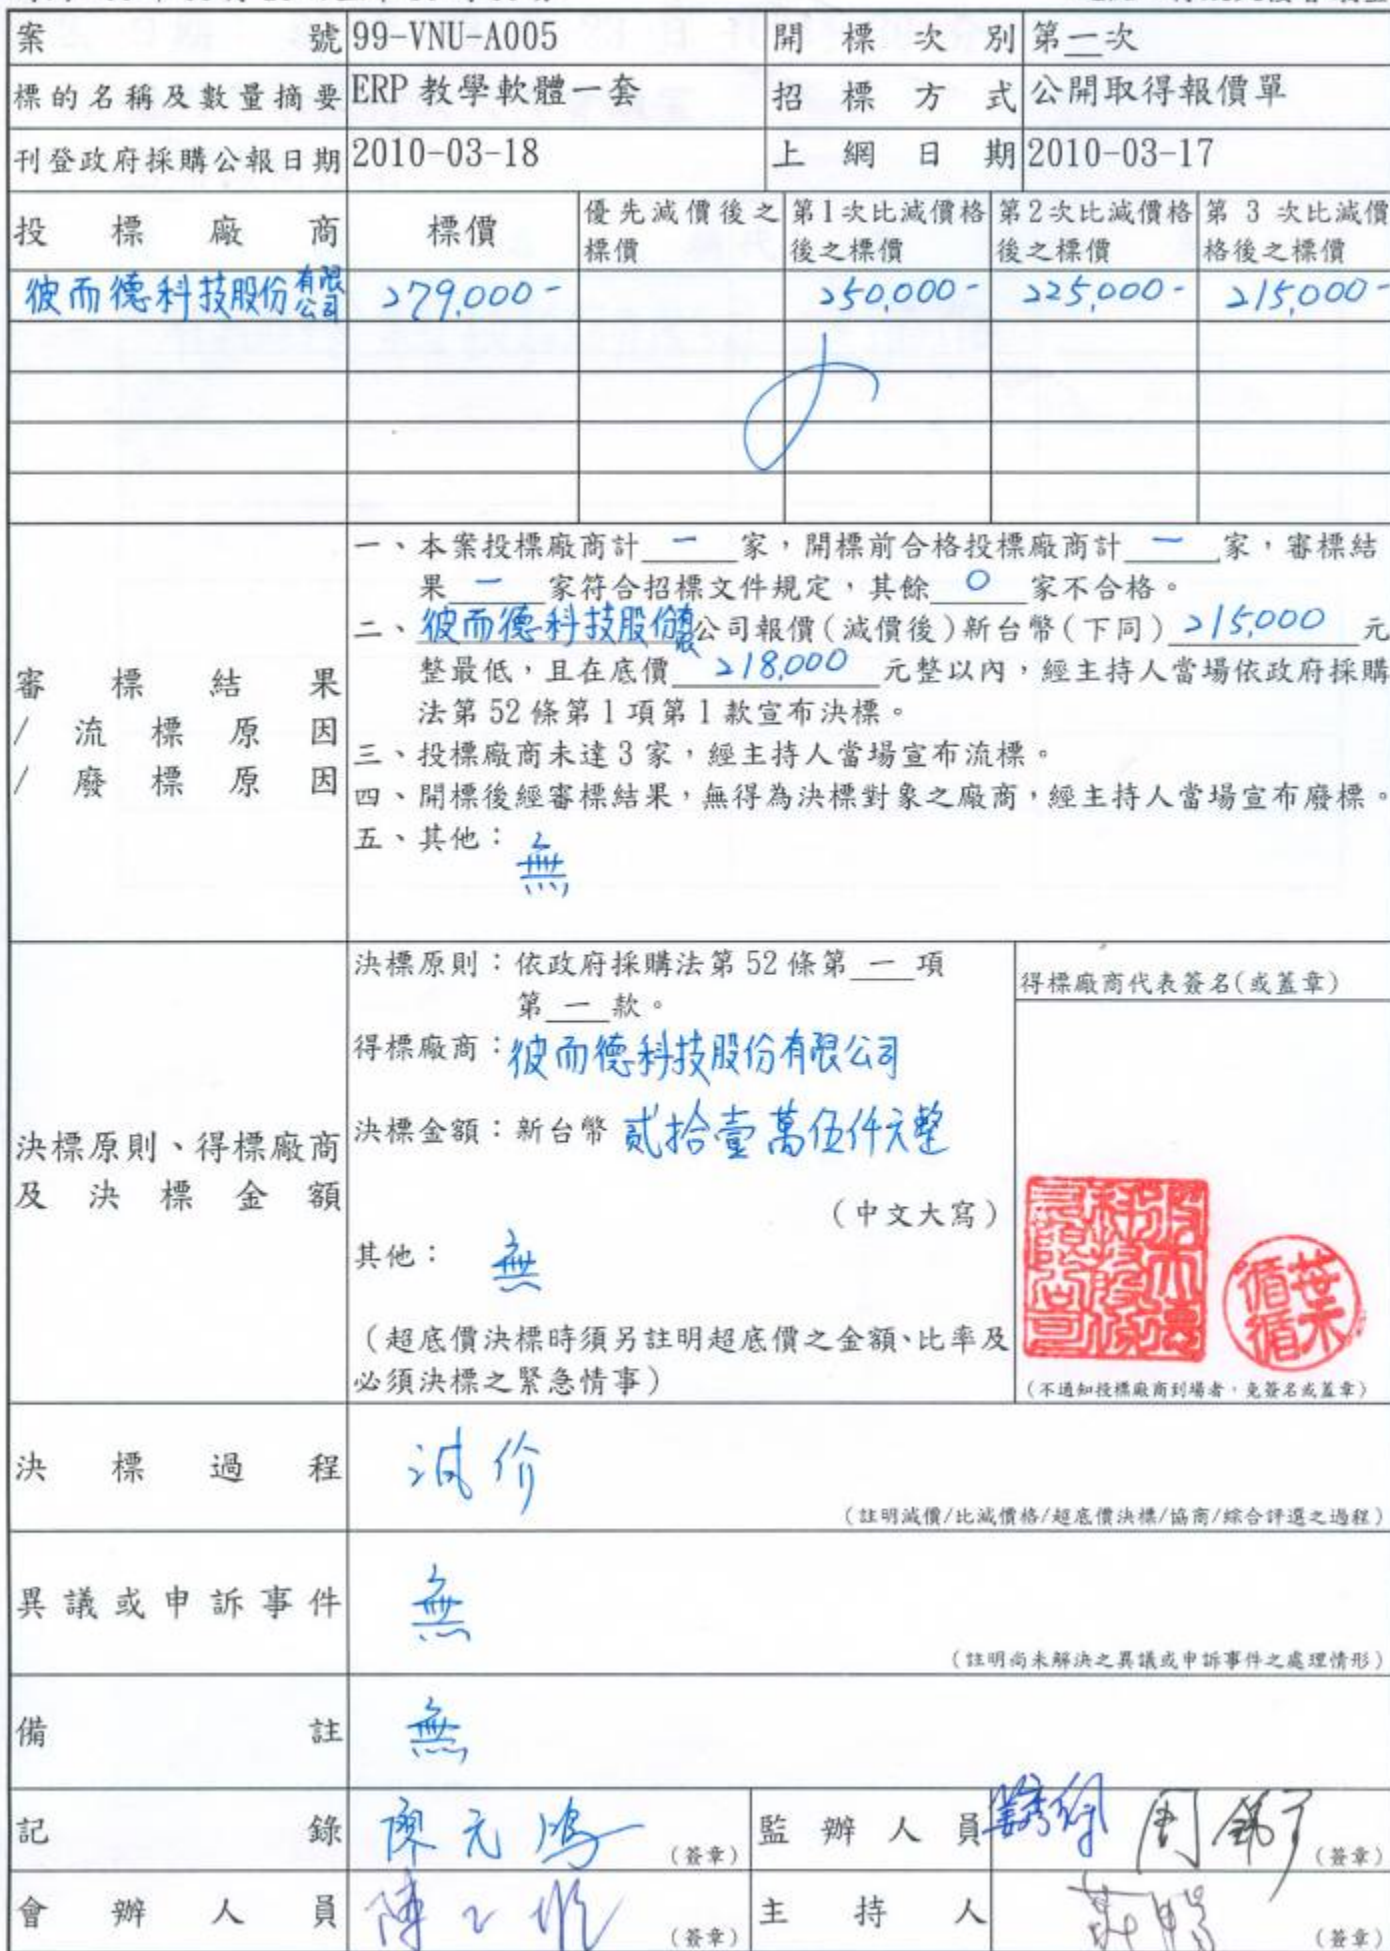 案號 99-VNU-A005 開標次別 第一次
標的名稱及數量摘要 ERP 教學軟體一套 招標方式 公開取得報價單
刊登政府採購公報日期 2010-03-18 上網日期 2010-03-17
投標廠商 標價 優先減價後之標價 第1次比減價格後之標價 第2次比減價格後之標價 第 3 次比減價格後之標價
彼而德科技股份有限公司 279,000- 250,000- 225,000- 215,000-
審標結果
/流標原因
/廢標原因
一、本案投標廠商計 一 家，開標前合格投標廠商計 一 家，審標結
果 一 家符合招標文件規定，其餘 0 家不合格。
二、彼而德科技股份有限公司報價(減價後)新台幣(下同) 215,000 元
整最低，且在底價 218,000 元整以內，經主持人當場依政府採購
法第 52 條第 1 項第 1 款宣布決標。
三、投標廠商未達 3 家，經主持人當場宣布流標。
四、開標後經審標結果，無得為決標對象之廠商，經主持人當場宣布廢標。
五、其他：無
決標原則、得標廠商
及決標金額
決標原則：依政府採購法第 52 條第 一 項
第 一 款。
得標廠商：彼而德科技股份有限公司
決標金額：新台幣 貳拾壹萬伍仟元整
(中文大寫)
其他：無
(超底價決標時須另註明超底價之金額、比率及
必須決標之緊急情事)
得標廠商代表簽名(或蓋章)
彼而德科技股份有限公司
葉循循
(不通知投標廠商到場者，免簽名或蓋章)
決標過程 減价
(註明減價/比減價格/超底價決標/協商/綜合評選之過程)
異議或申訴事件 無
(註明尚未解決之異議或申訴事件之處理情形)
備註 無
記錄 廖元鴻 (簽章) 監辦人員 (簽章)
會辦人員 (簽章) 主持人 (簽章)